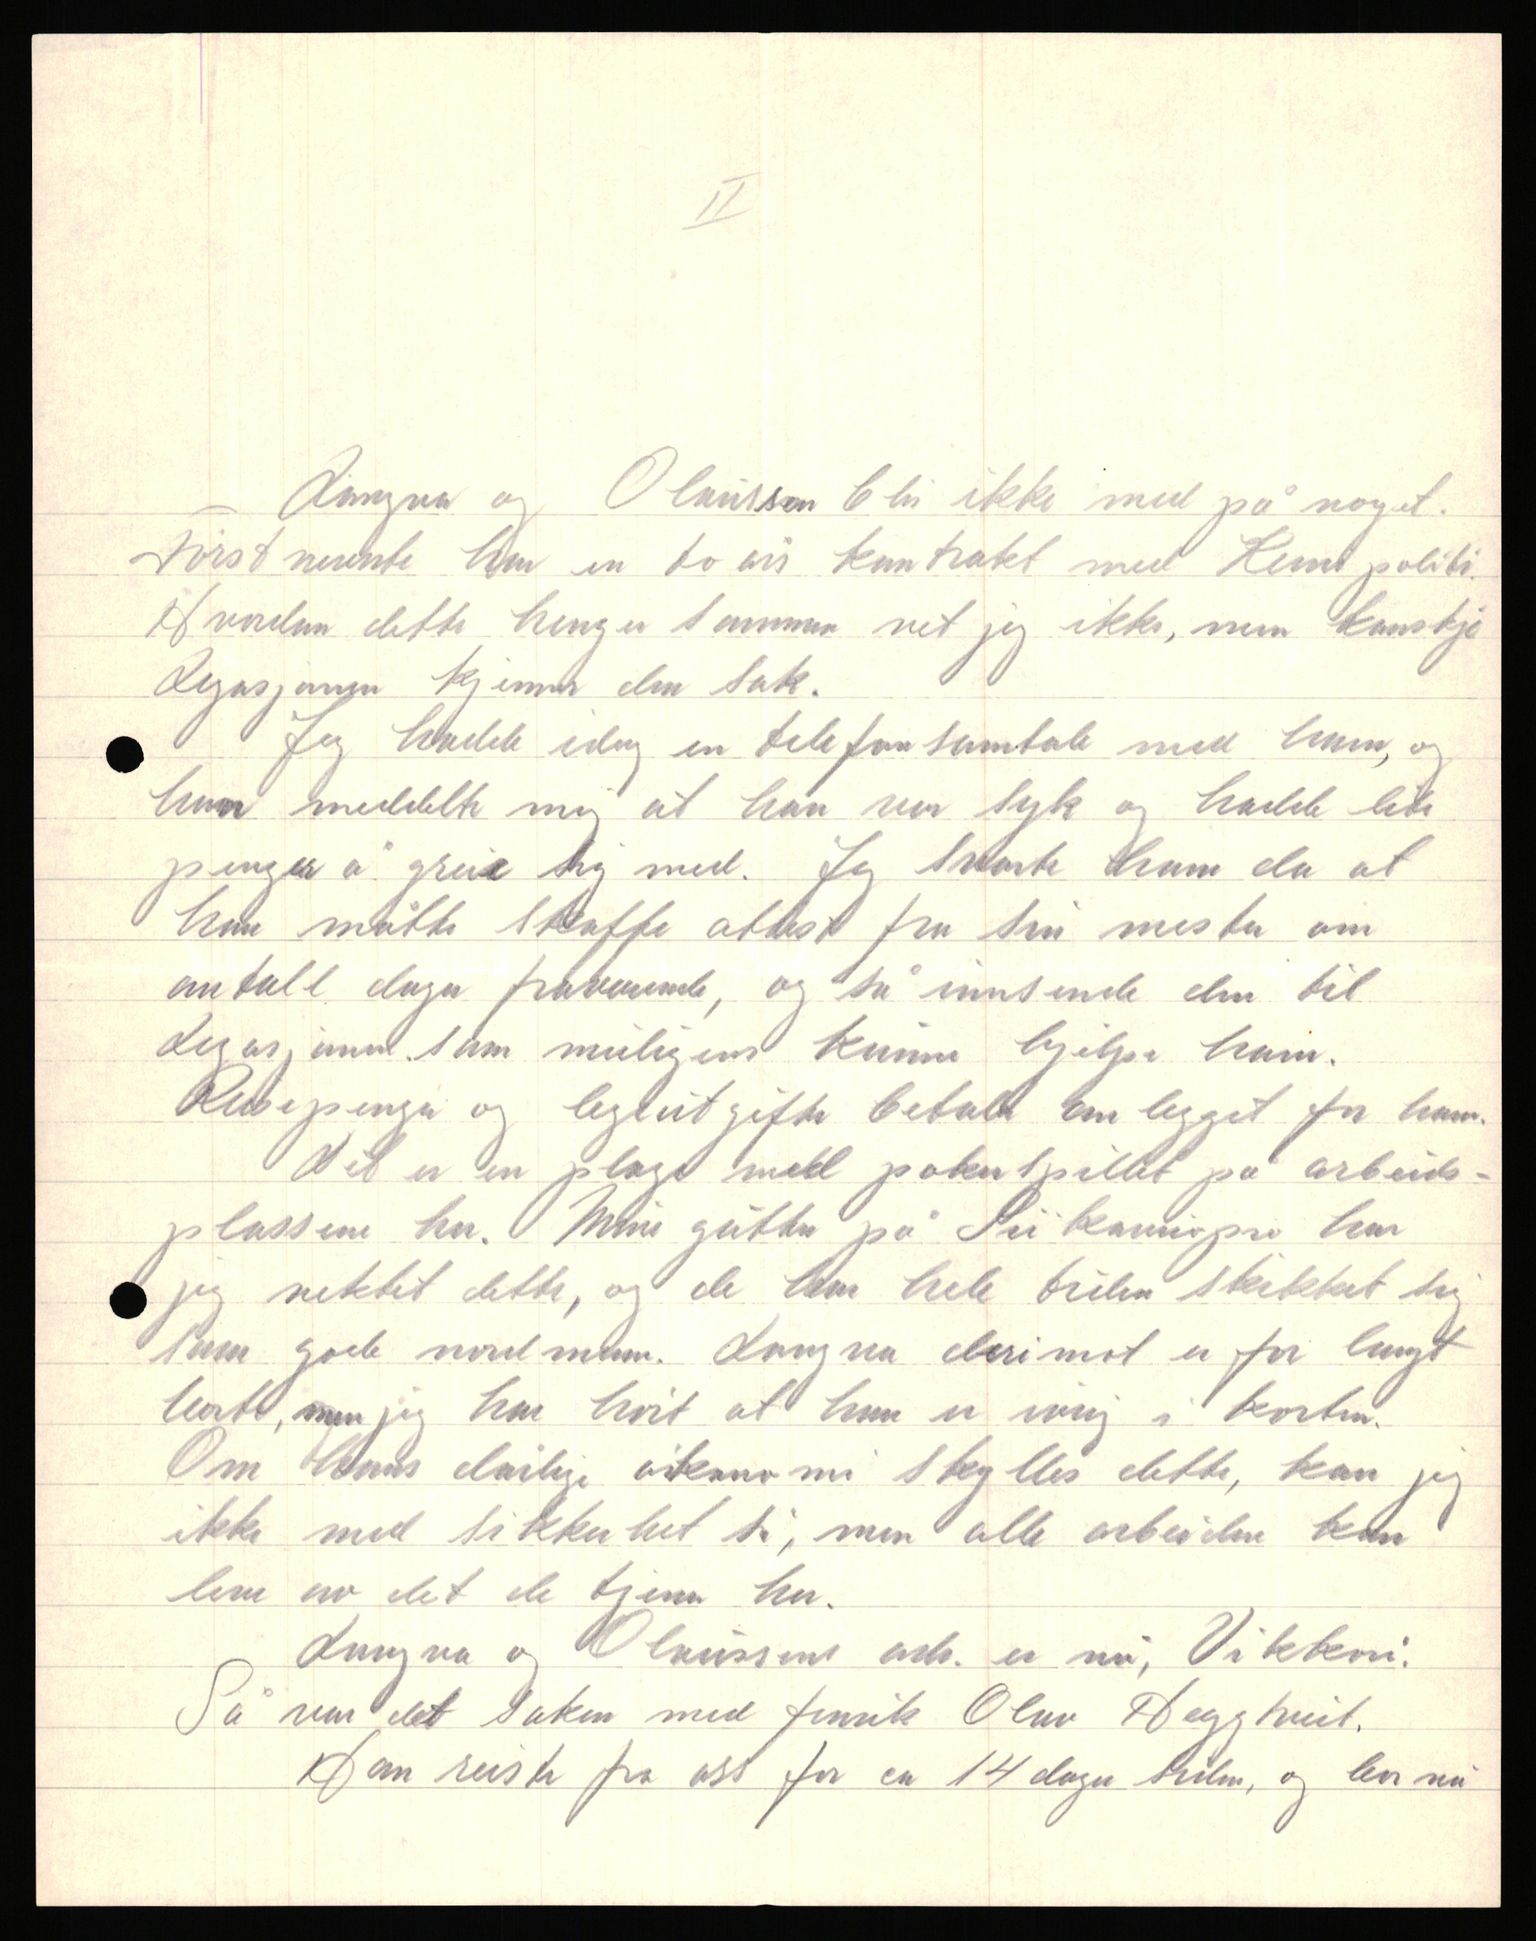 II
Langva og Olaussen blir ikke med på noget.
Førstnevnte har en to års kontrakt med Kemi politi.
Hvordan dette henger sammen vet jeg ikke, men kanskje
Legasjonen kjenner den sak.
Jeg hadde idag en telefonsamtale med ham, og
han meddelte mig at han var syk og hadde lite
penger å greie sig med. Jeg svarte ham da at
han måtte skaffe attest fra sin mester om
antall dager fraværende, og så innsende den til
Legasjonen som muligens kunne hjelpe ham.
Reisepenger og legeutgifter betaler anlegget for ham.
Det er en plage med pokerspillet på arbeids-
plassene her. Mine gutter på har
jeg nektet dette, og de har hele tiden skikket sig
som gode nordmenn. Langva derimot er for langt
borte, men jeg har hørt at han er ivrig i korten.
Om hans dårlige økonomi skylles dette, kan jeg
ikke med sikkerhet si, men alle arbeidere kan
leve av det de tjener her.
Langva og Olaussens adr. er nu, Vikkeri.
Så var det saken med fenrik Olav Heggtveit.
Han reiste fra oss for ca 14 dager siden, og bor nu